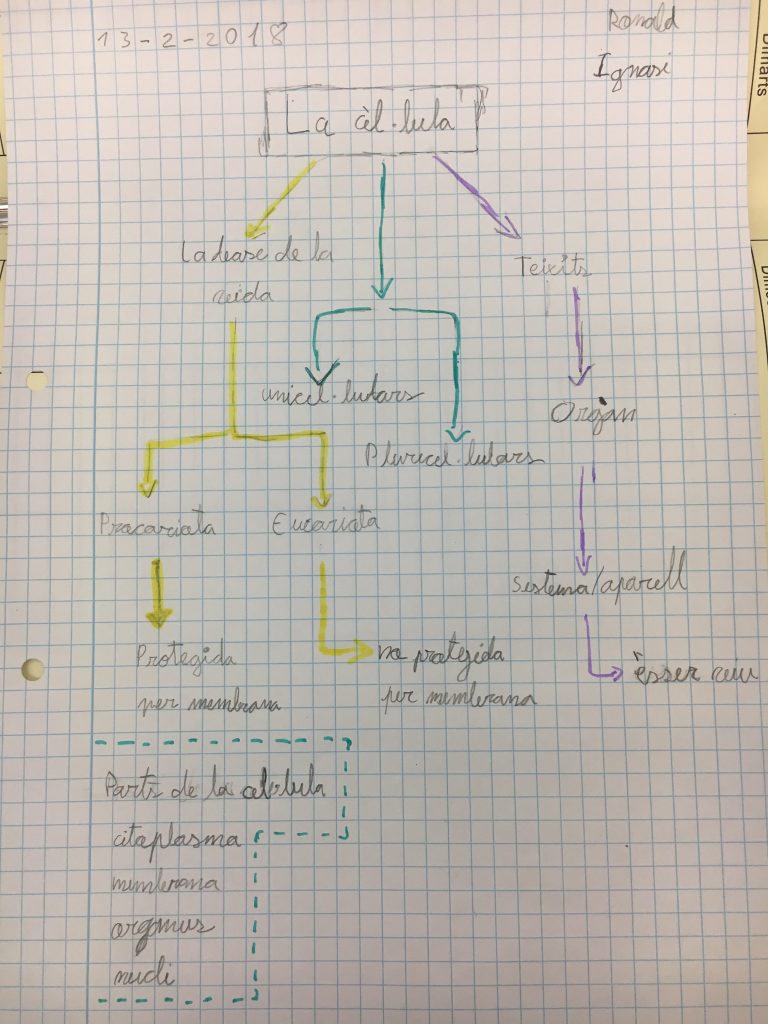 13-2-2018
Ronald
Ignasi
La cèl·lula
La base de la
vida
Teixits
unicel·lulars
Pluricel·lulars
Orgàn
Procariota
Eucariota
Sistema/aparell
Protegida
per membrana
no protegida
per membrana
èsser viu
Parts de la cel·lula
citoplasma
membrana
nucli
Dimarts